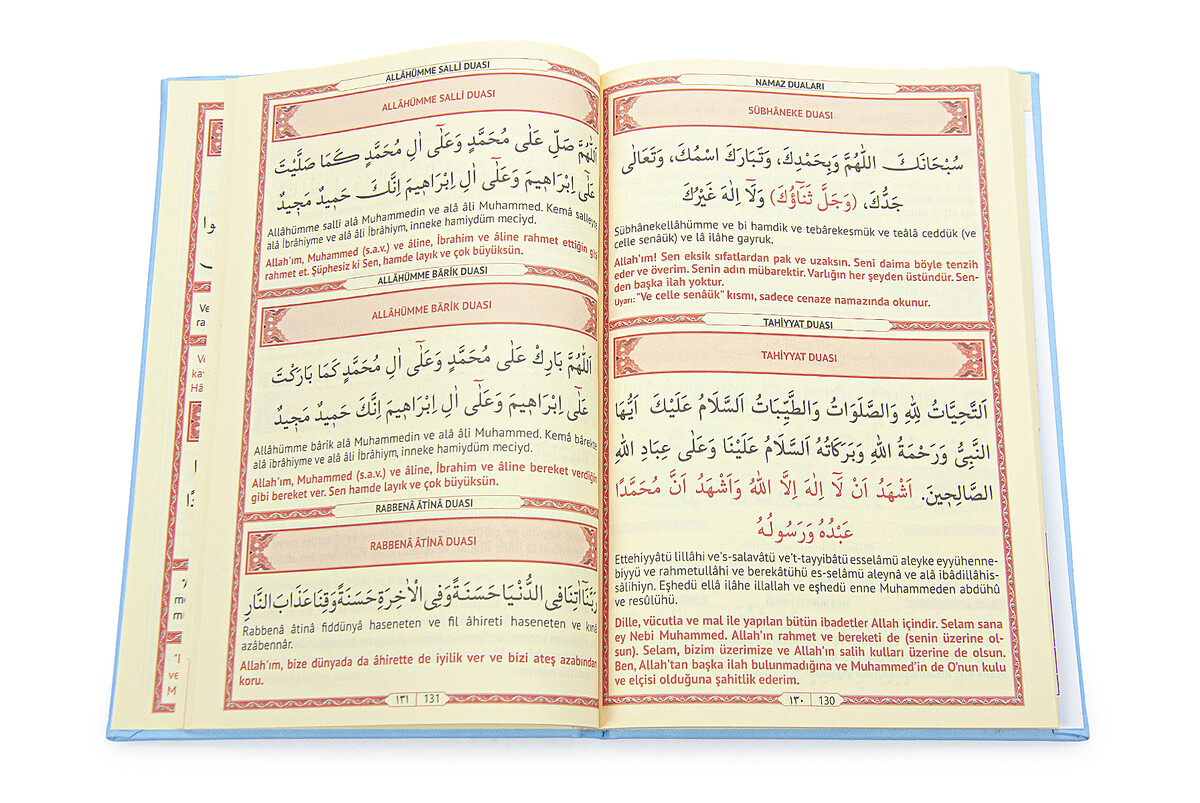 NAMAZ DUALARI
SÜBHÂNEKE DUASI
سُبْحَانَكَ اللّٰهُمَّ وَبِحَمْدِكَ، وَتَبَارَكَ اسْمُكَ، وَتَعَالٰى
جَدُّكَ، (وَجَلَّ ثَنَاۤؤُكَ) وَلَٓا اِلٰهَ غَيْرُكَ
Sübhânekellâhümme ve bi hamdik ve tebârekesmük ve teâlâ ceddük (ve
celle senâük) ve lâ ilâhe gayruk.
Allah'ım! Sen eksik sıfatlardan pak ve uzaksın. Seni daima böyle tenzih
eder ve överim. Senin adın mübarektir. Varlığın her şeyden üstündür. Sen-
den başka ilah yoktur.
Uyarı: "Ve celle senâük" kısmı, sadece cenaze namazında okunur.
TAHİYYAT DUASI
TAHİYYAT DUASI
اَلتَّحِيَّاتُ لِلّٰهِ وَالصَّلَوَاتُ وَالطَّيِّبَاتُ اَلسَّلَامُ عَلَيْكَ اَيُّهَا
النَّبِيُّ وَرَحْمَةُ اللّٰهِ وَبَرَكَاتُهُ اَلسَّلَامُ عَلَيْنَا وَعَلٰى عِبَادِ اللّٰهِ
الصَّالِحٖينَ. اَشْهَدُ اَنْ لَٓا اِلٰهَ اِلَّا اللّٰهُ وَاَشْهَدُ اَنَّ مُحَمَّدًا
عَبْدُهُ وَرَسُولُهُ
Ettehiyyâtü lillâhi ve's-salavâtü ve't-tayyibâtü esselâmü aleyke eyyühenne-
biyyü ve rahmetullâhi ve berekâtühü es-selâmü aleynâ ve alâ ibâdillâhis-
sâlihiyn. Eşhedü ellâ ilâhe illallah ve eşhedü enne Muhammeden abdühû
ve resûlühü.
Dille, vücutla ve mal ile yapılan bütün ibadetler Allah içindir. Selam sana
ey Nebi Muhammed. Allah'ın rahmet ve bereketi de (senin üzerine ol-
sun). Selam, bizim üzerimize ve Allah'ın salih kulları üzerine de olsun.
Ben, Allah'tan başka ilah bulunmadığına ve Muhammed'in de O'nun kulu
ve elçisi olduğuna şahitlik ederim.
١٣٠ 130
ALLÂHÜMME SALLİ DUASI
ALLÂHÜMME SALLİ DUASI
اَللّٰهُمَّ صَلِّ عَلٰى مُحَمَّدٍ وَعَلٰٓى اٰلِ مُحَمَّدٍ كَمَا صَلَّيْتَ
عَلٰٓى اِبْرَاهٖيمَ وَعَلٰٓى اٰلِ اِبْرَاهٖيمَ اِنَّكَ حَمٖيدٌ مَجٖيدٌ
Allâhümme salli alâ Muhammedin ve alâ âli Muhammed. Kemâ salleyte
alâ İbrâhiyme ve alâ âli İbrâhiym, inneke hamiydüm meciyd.
Allah'ım, Muhammed (s.a.v.) ve âline, İbrahim ve âline rahmet ettiğin gibi
rahmet et. Şüphesiz ki Sen, hamde layık ve çok büyüksün.
ALLÂHÜMME BÂRİK DUASI
ALLÂHÜMME BÂRİK DUASI
اَللّٰهُمَّ بَارِكْ عَلٰى مُحَمَّدٍ وَعَلٰٓى اٰلِ مُحَمَّدٍ كَمَا بَارَكْتَ
عَلٰٓى اِبْرَاهٖيمَ وَعَلٰٓى اٰلِ اِبْرَاهٖيمَ اِنَّكَ حَمٖيدٌ مَجٖيدٌ
Allâhümme bârik alâ Muhammedin ve alâ âli Muhammed. Kemâ bârekte
alâ ibrâhiyme ve alâ âli İbrâhiym, inneke hamiydüm meciyd.
Allah'ım, Muhammed (s.a.v.) ve âline, İbrahim ve âline bereket verdiğin
gibi bereket ver. Sen hamde layık ve çok büyüksün.
RABBENÂ ÂTİNÂ DUASI
RABBENÂ ÂTİNÂ DUASI
رَبَّنَٓا اٰتِنَا فِي الدُّنْيَا حَسَنَةً وَفِي الْاٰخِرَةِ حَسَنَةً وَقِنَا عَذَابَ النَّارِ
Rabbenâ âtinâ fiddünyâ haseneten ve fil âhireti haseneten ve kınâ
azâbennâr.
Allah'ım, bize dünyada da âhirette de iyilik ver ve bizi ateş azabından
koru.
١٣١ 131